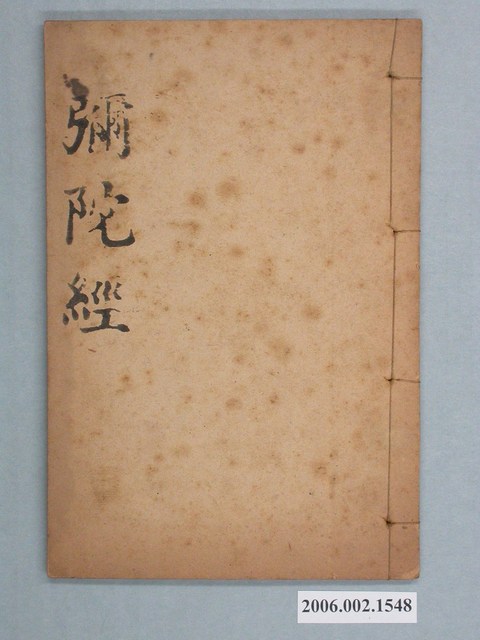 彌陀經
2006.002.1548